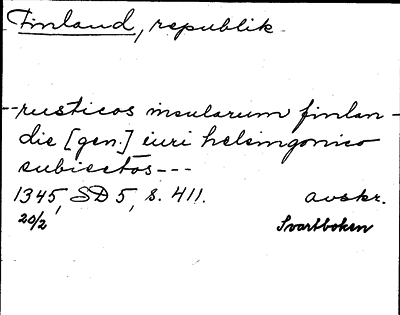 Finland, republik
--rusticos insularum finlan-
die [gen.] iuri helsingonico
subiectos---
1345, SD 5, s. 411. avskr.
20/2 Svartboken